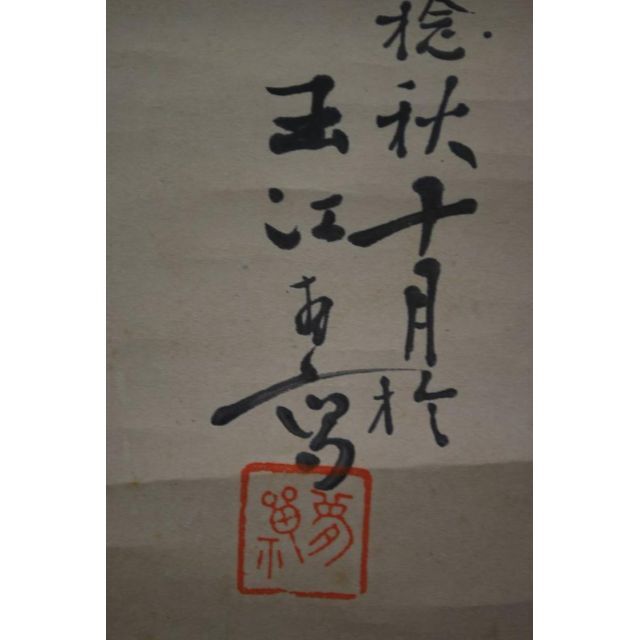 稔秋十月於
玉江寫
夢